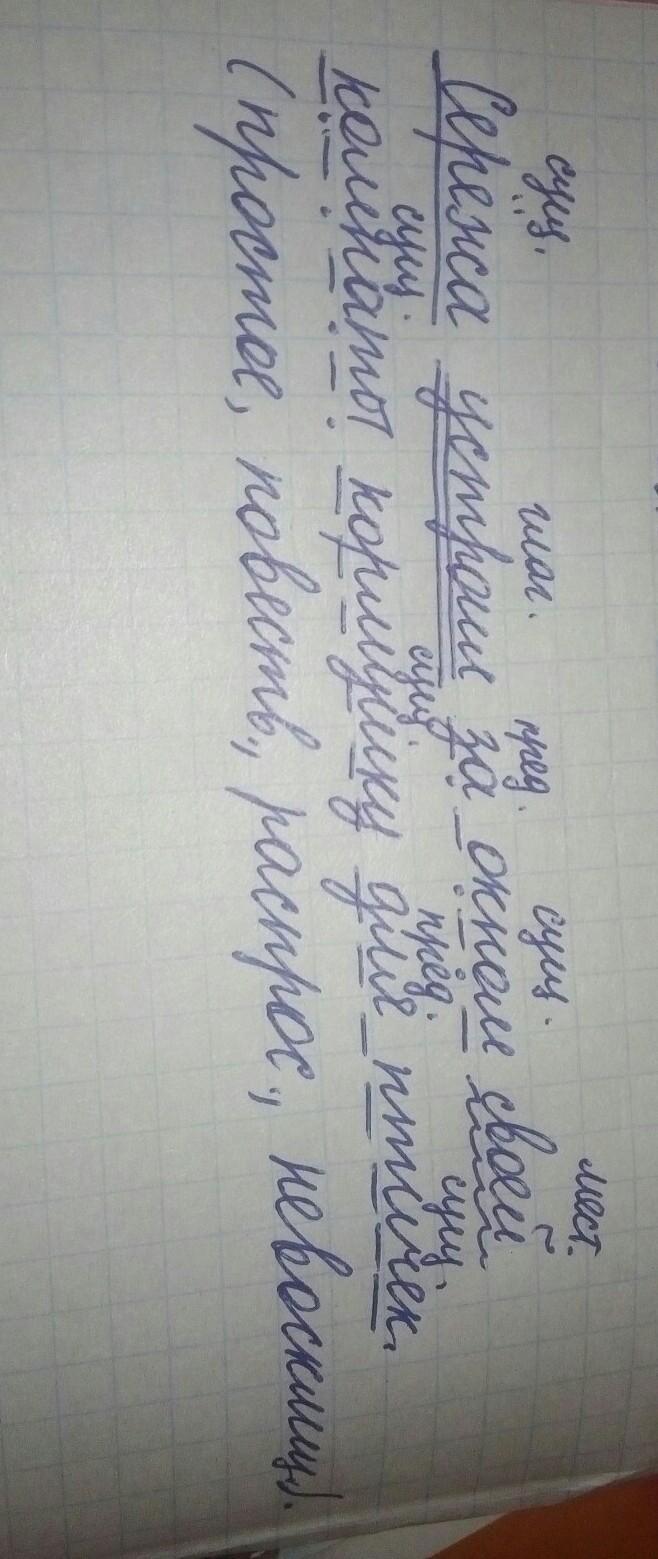 сущ. глаг. пред. сущ. мест.
Серёжа устроил за окном своей
сущ. сущ. пред. сущ.
комнаты кормушку для птичек.
(простое, повеств., распрос., невосклиц).